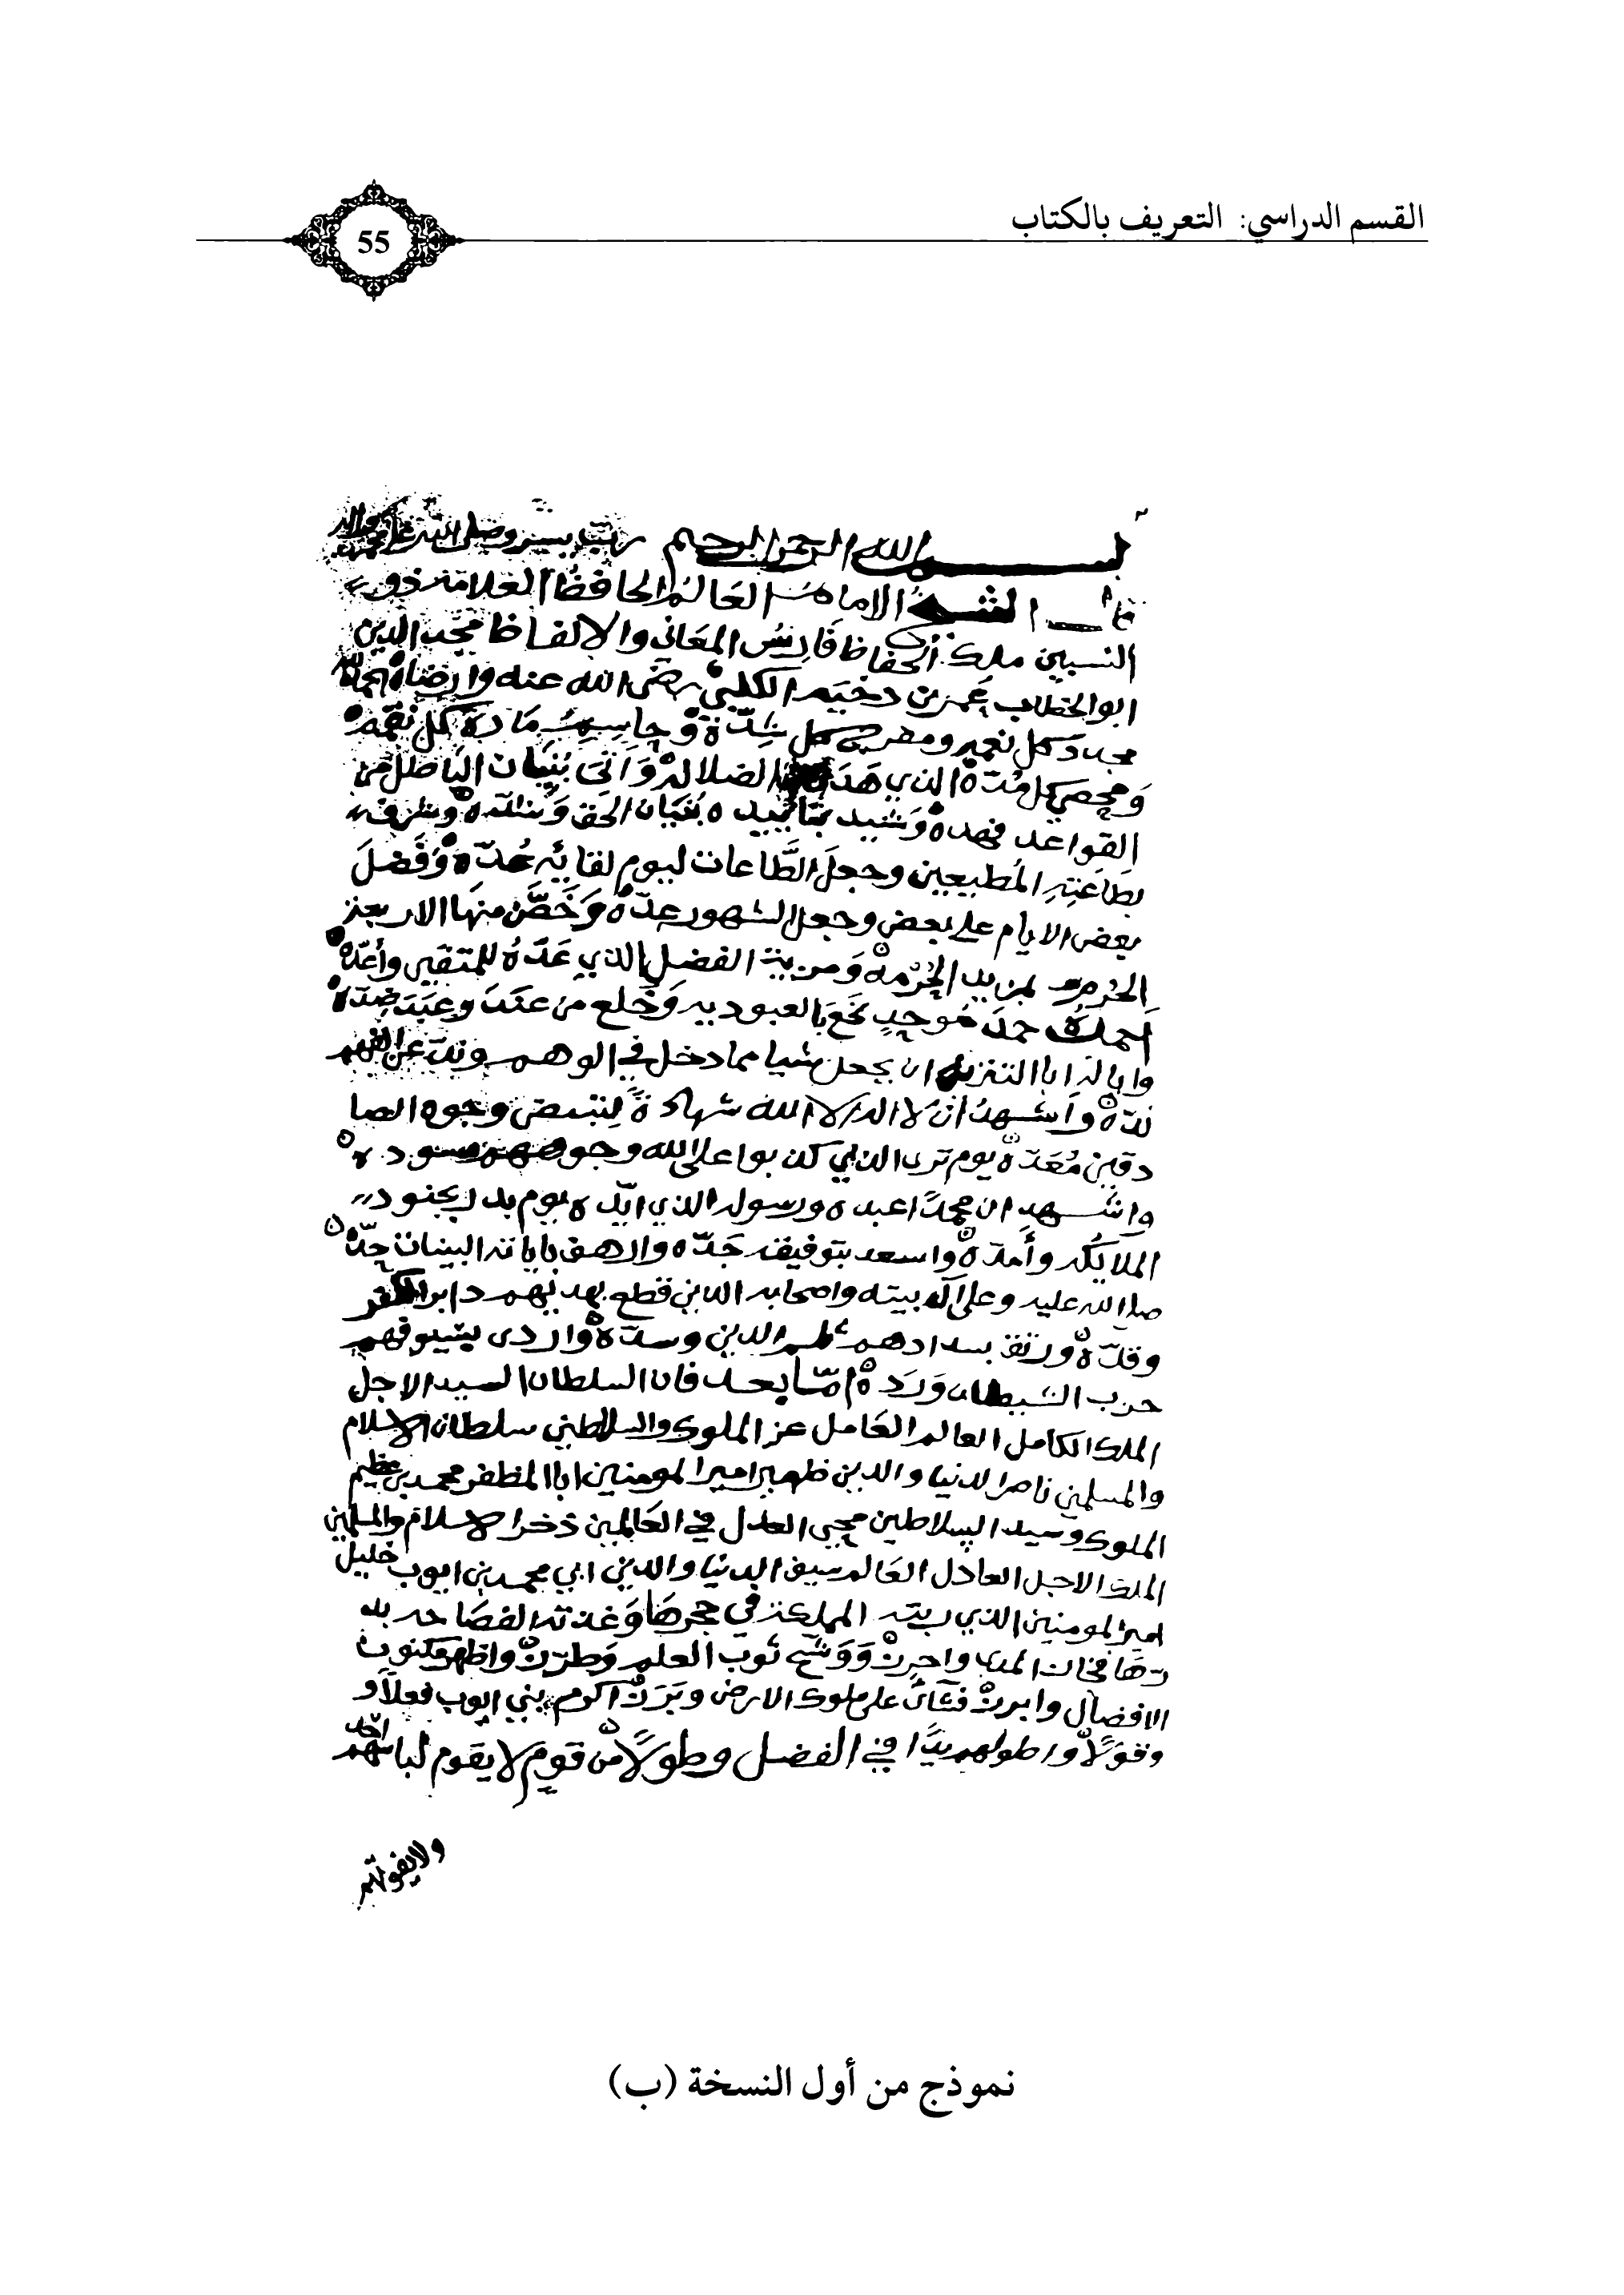 القسم الدراسي: التعريف بالكتاب
55
بسم الله الرحمن الرحيم رب يسر وصلى الله على
قال الشيخ الامام العالم الحافظ العلامة ذو
النسبين ملك الحفاظ فارس المعاني والالفاظ مجد الدين
ابو الخطاب عمر بن دحية الكلبي رضي الله عنه وارضاه
مجدد كل نعمه ومفرج كل شدّة وحاسم مادة كل نقمه
ومحصي كل مدّة الذي هدّ الضلالة وَاَتَى بُنيَان البَاطل من
القواعد فهده وشيد بتاييده بنيان الحق وشرف
بطاعته المطيعين وجعل الطَّاعات ليوم لقائه عُدّه وَفَضلَ
بعض الايام على بعض وجعل الشهور عدّه وَخَصَّ منها الاربعة
الحُرم بمزيد الحُرْمة ومزية الفضل الذي عَدّهُ للمتقين وأعدّه
أحمدهُ حمدَ مُوحدٍ نخع بالعبوديه وخلع من عَنَدَ وعبَدَ ضدّه
ان يجعل شيا مما دخل في الوهم وندّ عن الفهم
ندّه وأشهدُ ان لا اله الا الله شهادةً لتبيض وجوه الصا
دقين مُعَدّه يوم ترى الذين كذبوا على الله وجوههم مسوده
واشهد ان محمدًا عبده ورسوله الذي ايّده يوم بدر بجنود
الملائكه وأمدّه واسعد بتوفيقه جَدّه وارهف باياته البينات حدّه
صلى الله عليه وعلى آل بيته واصحابه الذين قطع بهم دابر الكفر
وقدّه ورتق بسدادهم ثلم الدين وسدّه واردى بسيوفهم
حزب الشيطان وَرَدّه امّا بعد فان السلطان السيد الاجل
الملك الكامل العالم العَامل عز الملوك والسلاطين سلطان الاسلام
والمسلمين ناصر الدنيا والدين ظهير امير المومنين ابا المظفر محمد بن عظيم
الملوك وسيد السلاطين محيي العدل في العَالمين ذخر الاسلام والمسلمين
الملك الاجل العادل العَالم سيف الدنيا والدين ابي محمد بن ايوب خليل
امير المومنين الذي ربته المملكة في حجرها وَغذته الفصَاحه بد
رّهَا فحاز المدى واحرز وَوَشّحَ ثوب العلم وَطرّز واظهر مكنون
الافضال وابرز فشأى على ملوك الارض وبَرَز اكرم بني ايوب فعلًا و
وقولًا واطولهم يدًا في الفضل وطولًا من قومٍ لا يقوم لباسهم احد
نموذج من أول النسخة (ب)